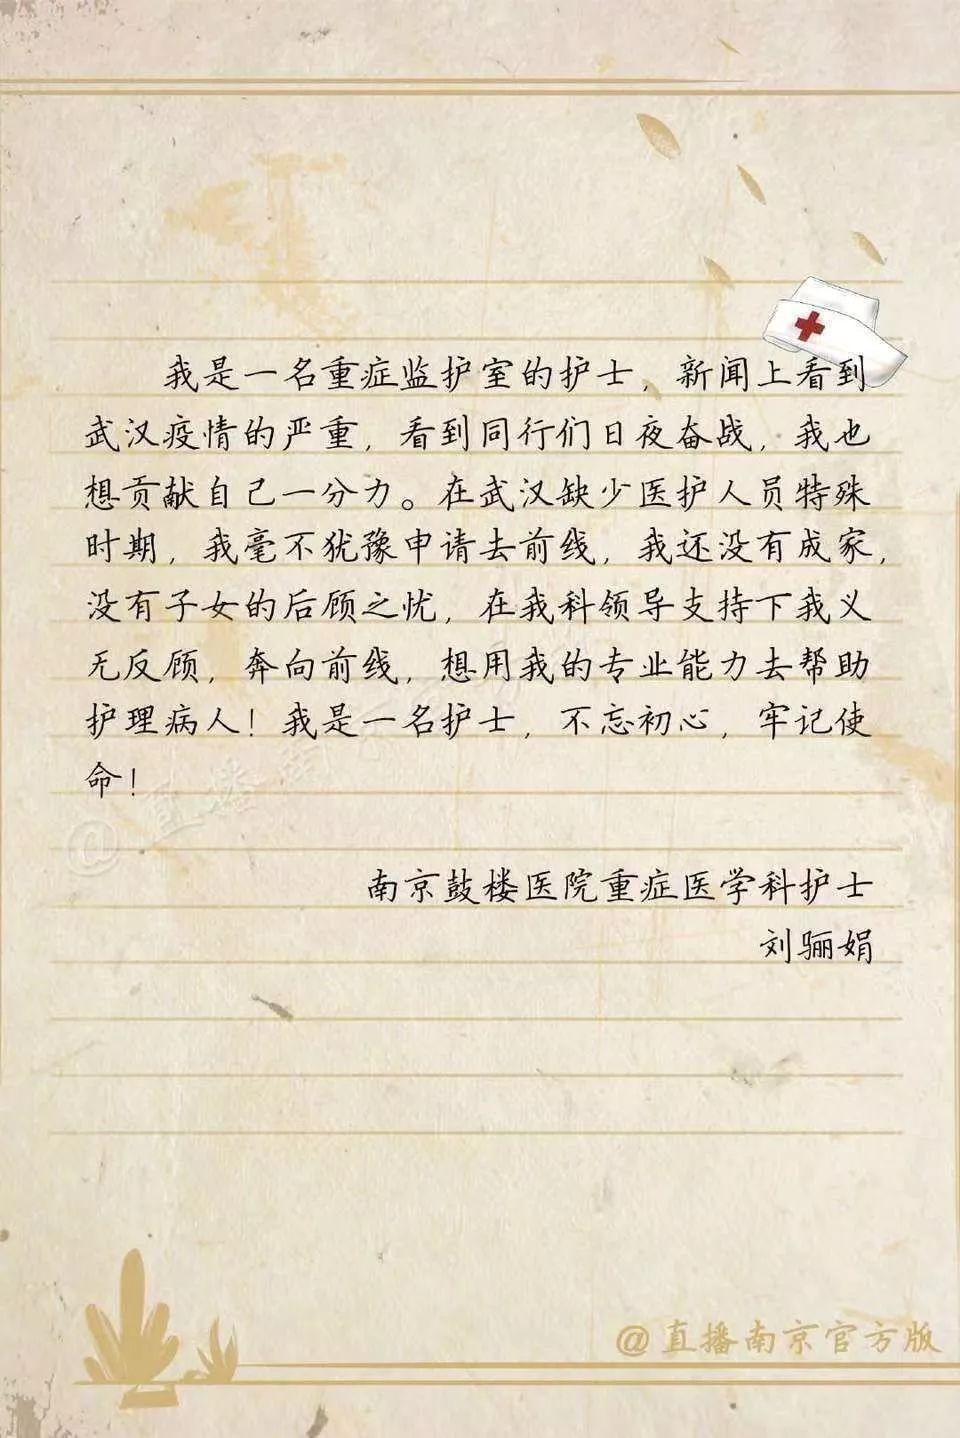 我是一名重症监护室的护士，新闻上看到
武汉疫情的严重，看到同行们日夜奋战，我也
想贡献自己一分力。在武汉缺少医护人员特殊
时期，我毫不犹豫申请去前线，我还没有成家，
没有子女的后顾之忧，在我科领导支持下我义
无反顾，奔向前线，想用我的专业能力去帮助
护理病人！我是一名护士，不忘初心，牢记使
命！
@直播南
南京鼓楼医院重症医学科护士
刘骊娟
@直播南京官方版